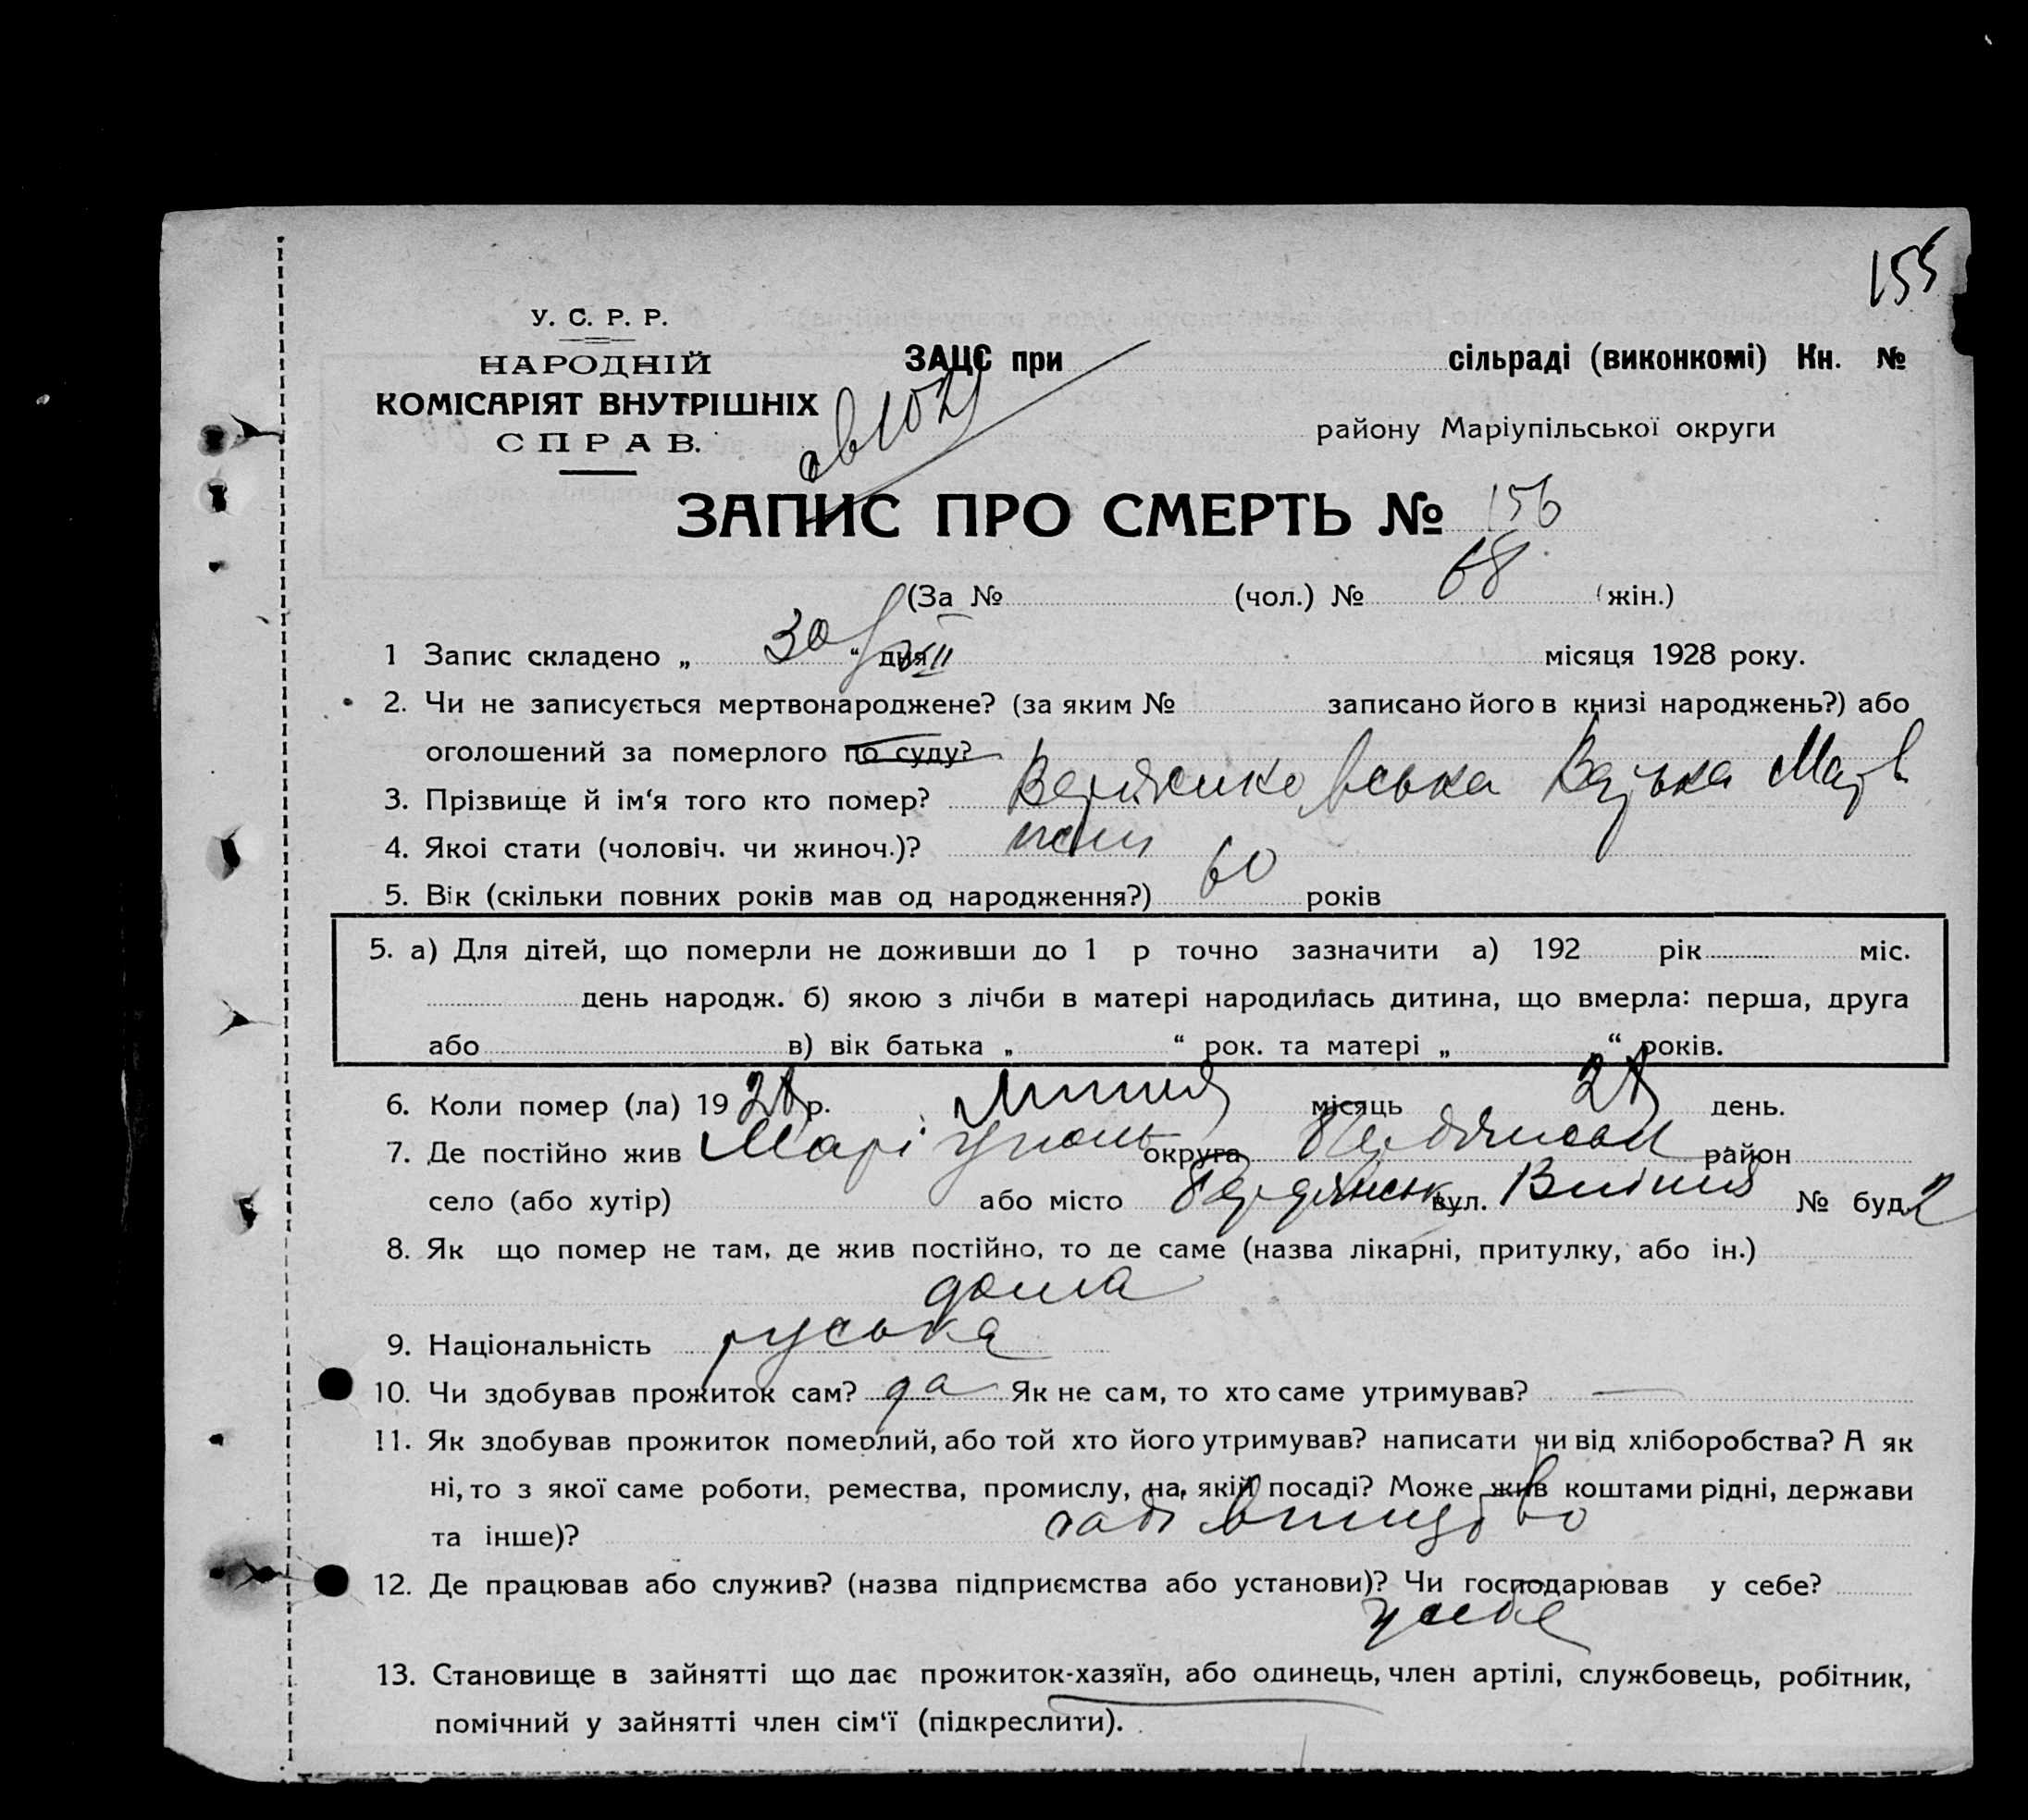 155
У. С. Р. Р.
НАРОДНІЙ
КОМІСАРІЯТ ВНУТРІШНІХ
СПРАВ.
ЗАЦС при сільраді (виконкомі) Кн. №
району Маріупільської округи
ЗАПИС ПРО СМЕРТЬ № 156
(За № (чол.) № 68 (жін.)
1 Запис складено „ 30 “ дня VII місяця 1928 року.
2. Чи не записується мертвонароджене? (за яким № записано його в книзі народжень?) або
оголошений за померлого по суду?
3. Прізвище й ім‘я того кто помер?
4. Якоі стати (чоловіч. чи жиноч.)? жін
5. Вік (скільки повних років мав од народження?) 60 років
5. а) Для дітей, що померли не доживши до 1 р точно зазначити а) 192 рік міс.
день народж. б) якою з лічби в матері народилась дитина, що вмерла: перша, друга
або в) вік батька „ “ рок. та матері „ “ років.
6. Коли помер (ла) 1928 р. липня місяць 28 день.
7. Де постійно жив Маріуполь округа Бердянськ район
село (або хутір) або місто Бердянськ вул. № буд. 2
8. Як що помер не там, де жив постійно, то де саме (назва лікарні, притулку, або ін.)
дома
9. Національність руська
10. Чи здобував прожиток сам? да Як не сам, то хто саме утримував? —
11. Як здобував прожиток померлий, або той хто його утримував? написати чи від хліборобства? А як
ні, то з якої саме роботи, ремества, промислу, на якій посаді? Може жив коштами рідні, держави
та інше)?
12. Де працював або служив? (назва підприємства або установи)? Чи господарював у себе?
у себе
13. Становище в зайнятті що дає прожиток-хазяїн, або одинець, член артілі, службовець, робітник,
помічний у зайнятті член сім‘ї (підкреслити).